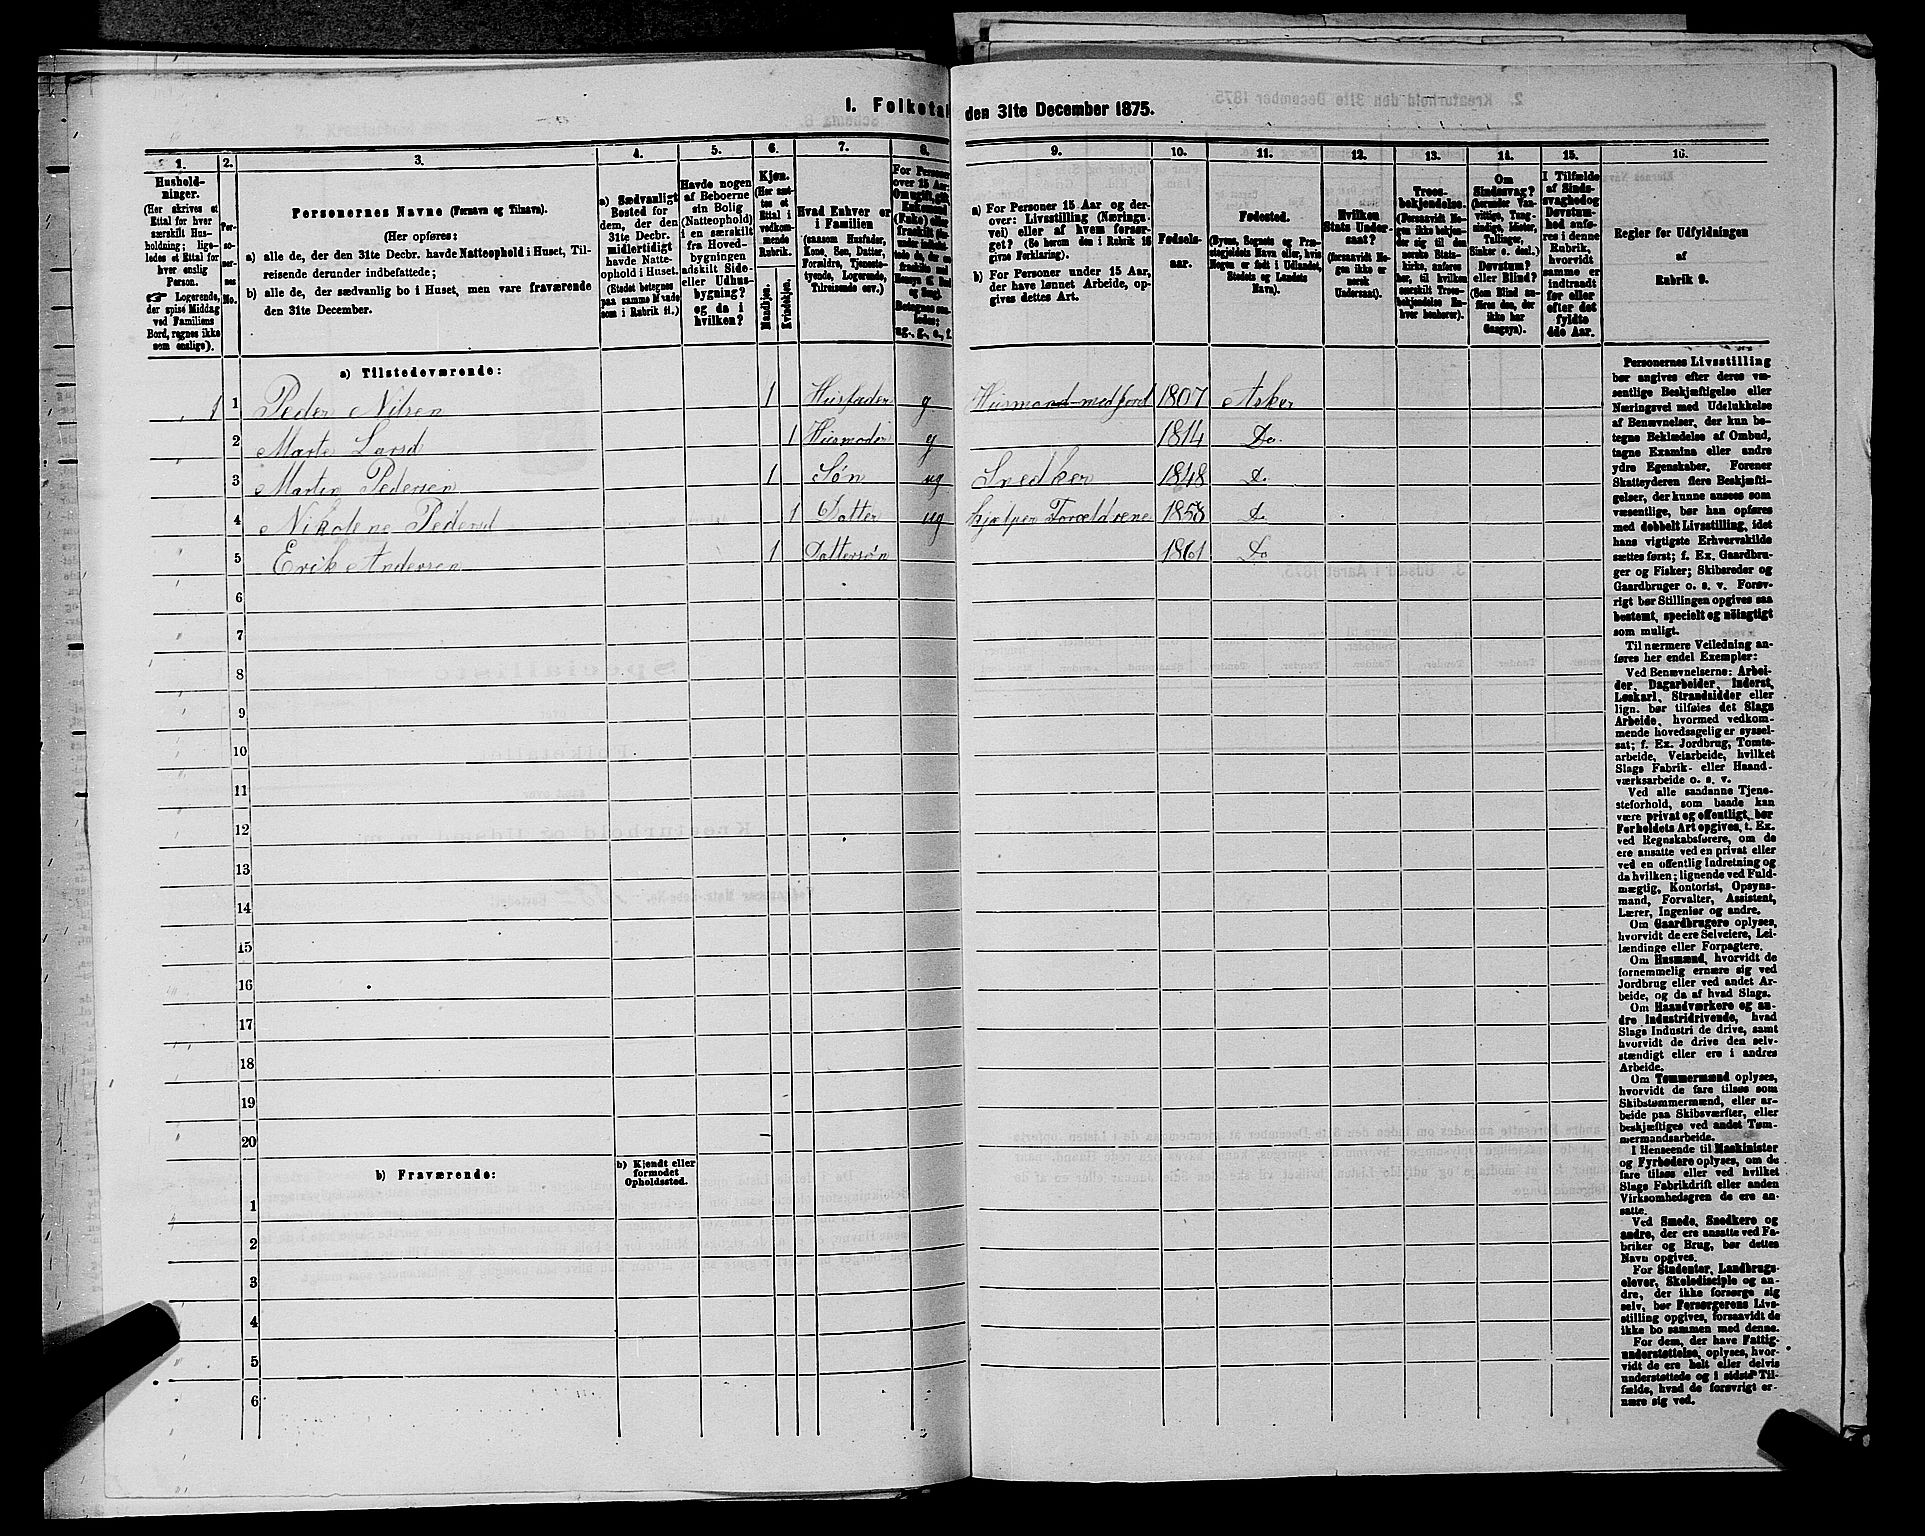 1. Folketal
den 31te December 1875.
1.
2.
3.
4.
5.
6.
7.
8.
9.
10.
11.
12.
13.
14.
15.
16.
Hushold-
ninger.
(Her skrives et
Ettal for hver
særskilt Hus-
holdning; lige-
ledes et Ettal for
hver enslig
Person.
☞ Logerende,
der spise Middag
ved Familiens
Bord, regnes ikke
som enslige).
Per-
so-
ner-
nes
No.
Personernes Navne (Fornavn og Tilnavn).
(Her opføres:
a) alle de, der den 31te Decbr. havde Natteophold i Huset, Til-
reisende derunder indbefattede;
b) alle de, der sædvanlig bo i Huset, men vare fraværende
den 31te December.
a) Sædvanligt
Bosted for
dem, der den
31te Decbr.
midlertidigt
havde Natte-
ophold i Huset.
(Stedet betegnes
paa samme Maade
som i Rubrik 11.)
Havde nogen
af Beboerne
sin Bolig
(Natteophold)
i en særskilt
fra Hoved-
bygningen
adskilt Side-
eller Udhus-
bygning?
og da i
hvilken?
Kjøn.
(Her sæt-
tes et
Ettal i
vedkom-
mende
Rubrik.
Mandkjøn.
Kvindekjøn.
Hvad Enhver er
i Familien
(saasom Husfader,
Kone, Søn, Datter,
Forældre, Tjeneste-
tyende, Logerende,
Tilreisende osv.)
For Personer
over 15 Aar:
ug., g., e., f.
a) For Personer 15 Aar og der-
over: Livsstilling (Nærings-
vei) eller af hvem forsør-
get? (Se herom den i Rubrik 16
givne Forklaring).
b) For Personer under 15 Aar,
der have lønnet Arbeide, op-
gives dettes Art.
Fødsels-
aar.
Fødested.
(Byens, Sognets og Præ-
stegjeldets Navn eller, hvis
Nogen er født i Udlandet,
Stedets og Landets
Navn).
Hvilken
Stats Under-
saat?
(forsaavidt No-
gen ikke er
norsk
Undersaat).
Troes-
bekjendelse.
(Forsaavidt No-
gen ikke bekjen-
der sig til den
norske Stats-
kirke, anføres
her, til hvilken
særskilt Troes-
bekjendelse En-
hver henhører).
Om
Sindssvag?
(herunder Van-
vittige, Tung-
sindige, Idioter,
Tullinger,
Sinker o. desl.)
Døvstum?
eller Blind?
(Som Blind an-
føres den, der
ikke har
Gangsyn).
I Tilfælde
af Sinds-
svaghed og
Døvstum-
hed anfø-
res i denne
Rubrik,
hvorvidt
samme er
indtraadt
før eller
efter det
fyldte
4de Aar.
Regler for Udfyldningen
af
Rubrik 9.
a) Tilstedeværende:
1 1 Peder Nilsen 1 Husfader g Husmand med jord 1807 Asker
2 Marte Larsd 1 Husmoder g 1814 Do.
3 Martin Pedersen 1 Søn ug Snedker 1848 Do
4 Nikolene Pedersd 1 Datter ug hjælper Forældrene 1858 Do
5 Erik Andersen 1 Dattersøn 1861 Do
6
7
8
9
10
11
12
13
14
15
16
17
18
19
20
b) Fraværende:
b) Kjendt eller
formodet
Opholdssted.
1
2
3
4
5
6
Personernes Livsstilling
bør angives efter deres væ-
sentlige Beskjæftigelse eller
Næringsvei med Udelukkelse
af Benævnelser, der kun be-
tegne Beklædelse af Ombud,
tagne Examina eller andre
ydre Egenskaber. Forener
Skatteyderen flere Beskjæfti-
gelser, der kunne ansees som
væsentlige, bør han opføres
med dobbelt Livsstilling, idet
hans vigtigste Erhvervskilde
sættes først; f. Ex. Gaardbru-
ger og Fisker; Skibsreder og
Gaardbruger o. s. v. Forøv-
rigt bør Stillingen opgives saa
bestemt, specielt og nøiagtigt
som muligt.
Til nærmere Veiledning an-
føres her endel Exempler:
Ved Benævnelserne: Arbei-
der, Dagarbeider, Inderst,
Løskarl, Strandsidder eller
lign. bør tilføies det Slags
Arbeide, hvormed vedkom-
mende hovedsagelig er syssel-
sat; f. Ex. Jordbrug, Tomte-
arbeide, Veiarbeide, hvilket
Slags Fabrik- eller Haand-
værksarbeide o. s. v.
Ved alle saadanne Tjene-
steforhold, som baade kan
være privat og offentligt, bør
Forholdets Art opgives, t. Ex.
ved Regnskabsførere, om de
ere ansatte ved en privat eller
ved en offentlig Indretning og
da hvilken; lignende ved Fuld-
mægtig, Kontorist, Opsyns-
mand, Forvalter, Assistent,
Lærer, Ingeniør og andre.
Om Gaardbrugere oplyses,
hvorvidt de ere Selveiere, Lei-
lændinge eller Forpagtere.
Om Husmænd, hvorvidt de
fornemmelig ernære sig ved
Jordbrug eller ved andet Ar-
beide, og da af hvad Slags.
Om Haandværkere og an-
dre Industridrivende, hvad
Slags Industri de drive, samt
hvorvidt de drive den selv-
stændigt eller ere i andres
Arbeide.
Om Tømmermænd oplyses,
hvorvidt de fare tilsøs som
Skibstømmermænd, eller ar-
beide paa Skibsværfter, eller
beskjæftiges ved andet Tøm-
mermandsarbeide.
I Henseende til Maskinister
og Fyrbødere oplyses, om de
fare tilsøs eller ved hvilket
Slags Fabrikdrift eller anden
Virksomhedsgren de ere an-
satte.
Ved Smede, Snedkere og
andre, der ere ansatte ved Fa-
briker og Brug, bør dettes
Navn opgives.
For Studenter, Landbrugs-
elever, Skoledisciple og an-
dre, der ikke forsørge sig
selv, bør Forsørgerens Livs-
stilling opgives, forsaavidt de
ikke bo sammen med denne.
For dem, der have Fattig-
understøttelse, oplyses, hvor-
vidt de ere helt eller delvis
understøttede og i sidste Til-
fælde, hvad de forøvrigt er-
nære sig ved.